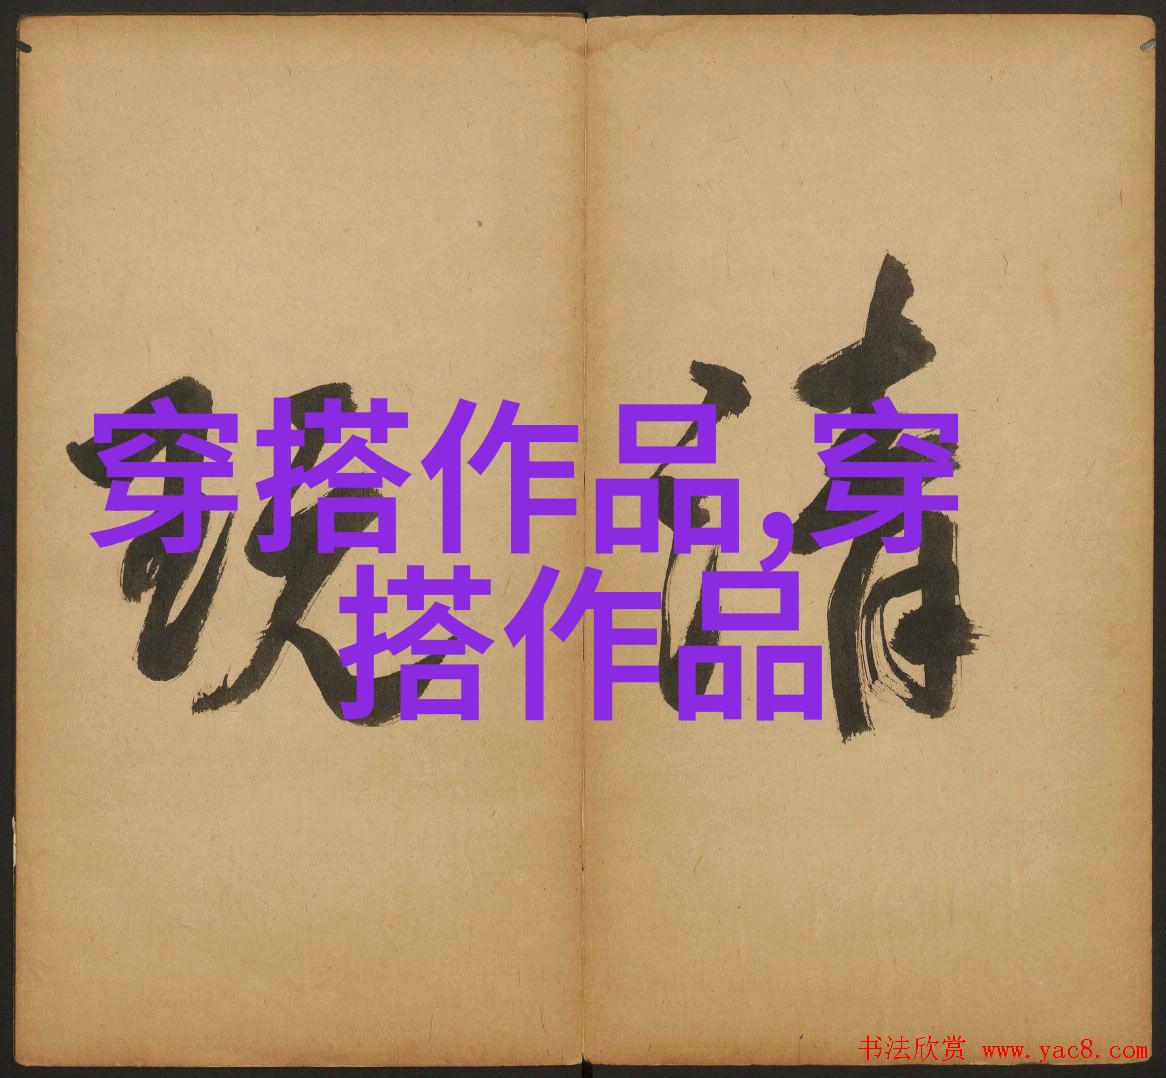 穿搭作品,穿
搭作品
清
书法欣赏 www.yac8.com